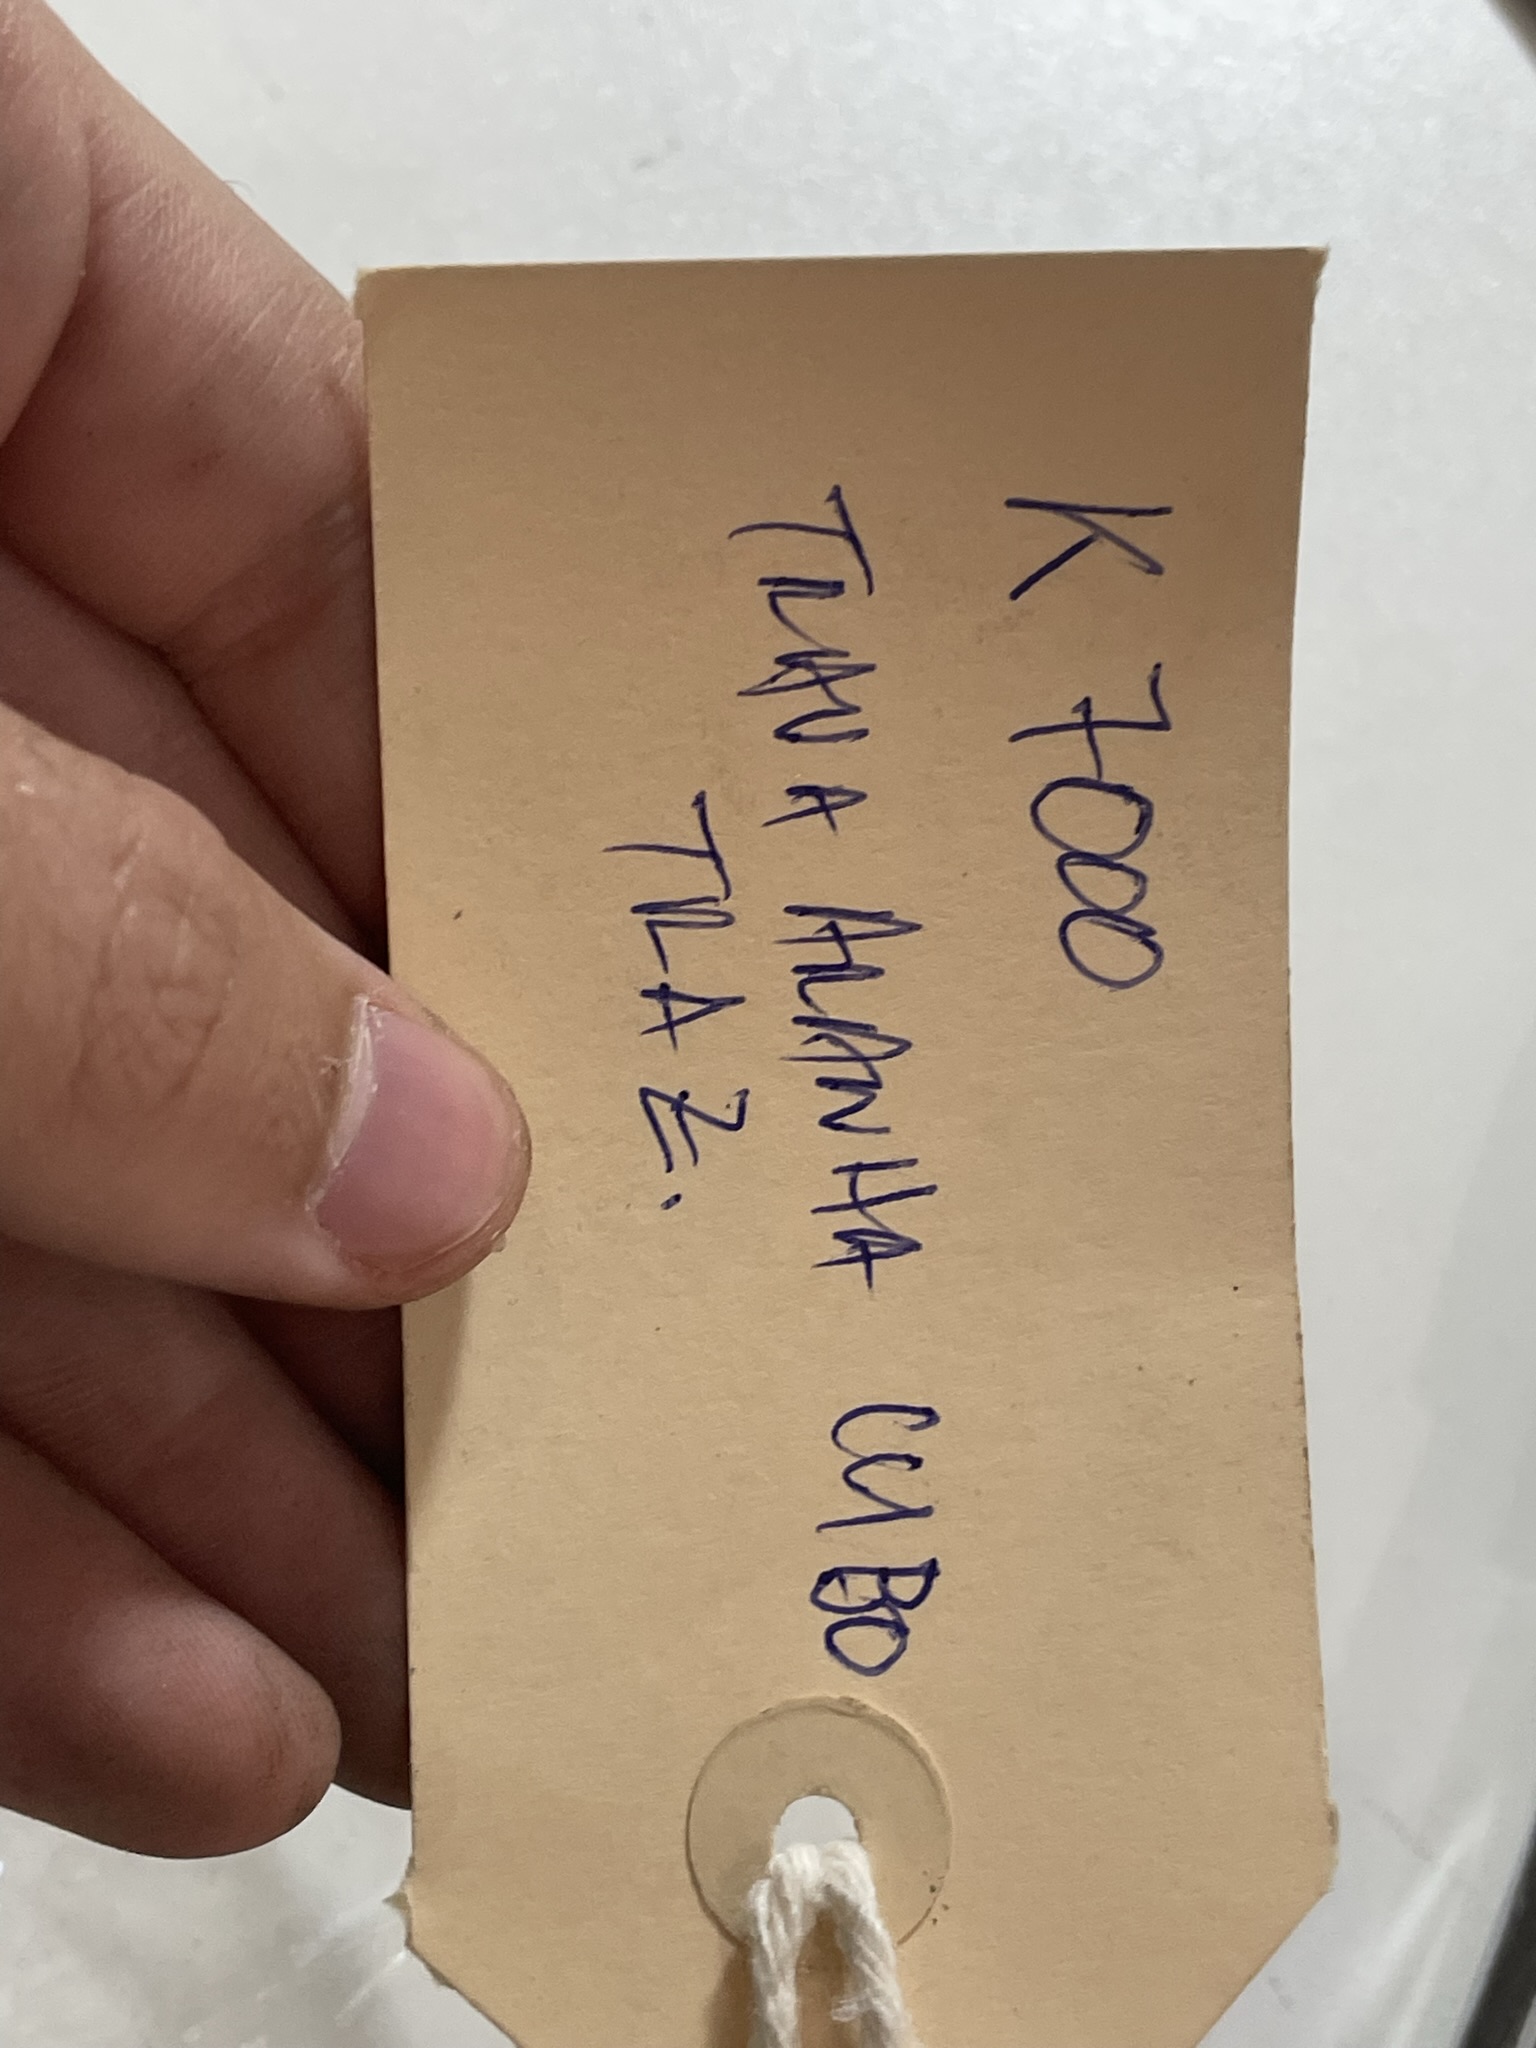 K 7000
TRAVA ARANHA CUBO
TRAZ.